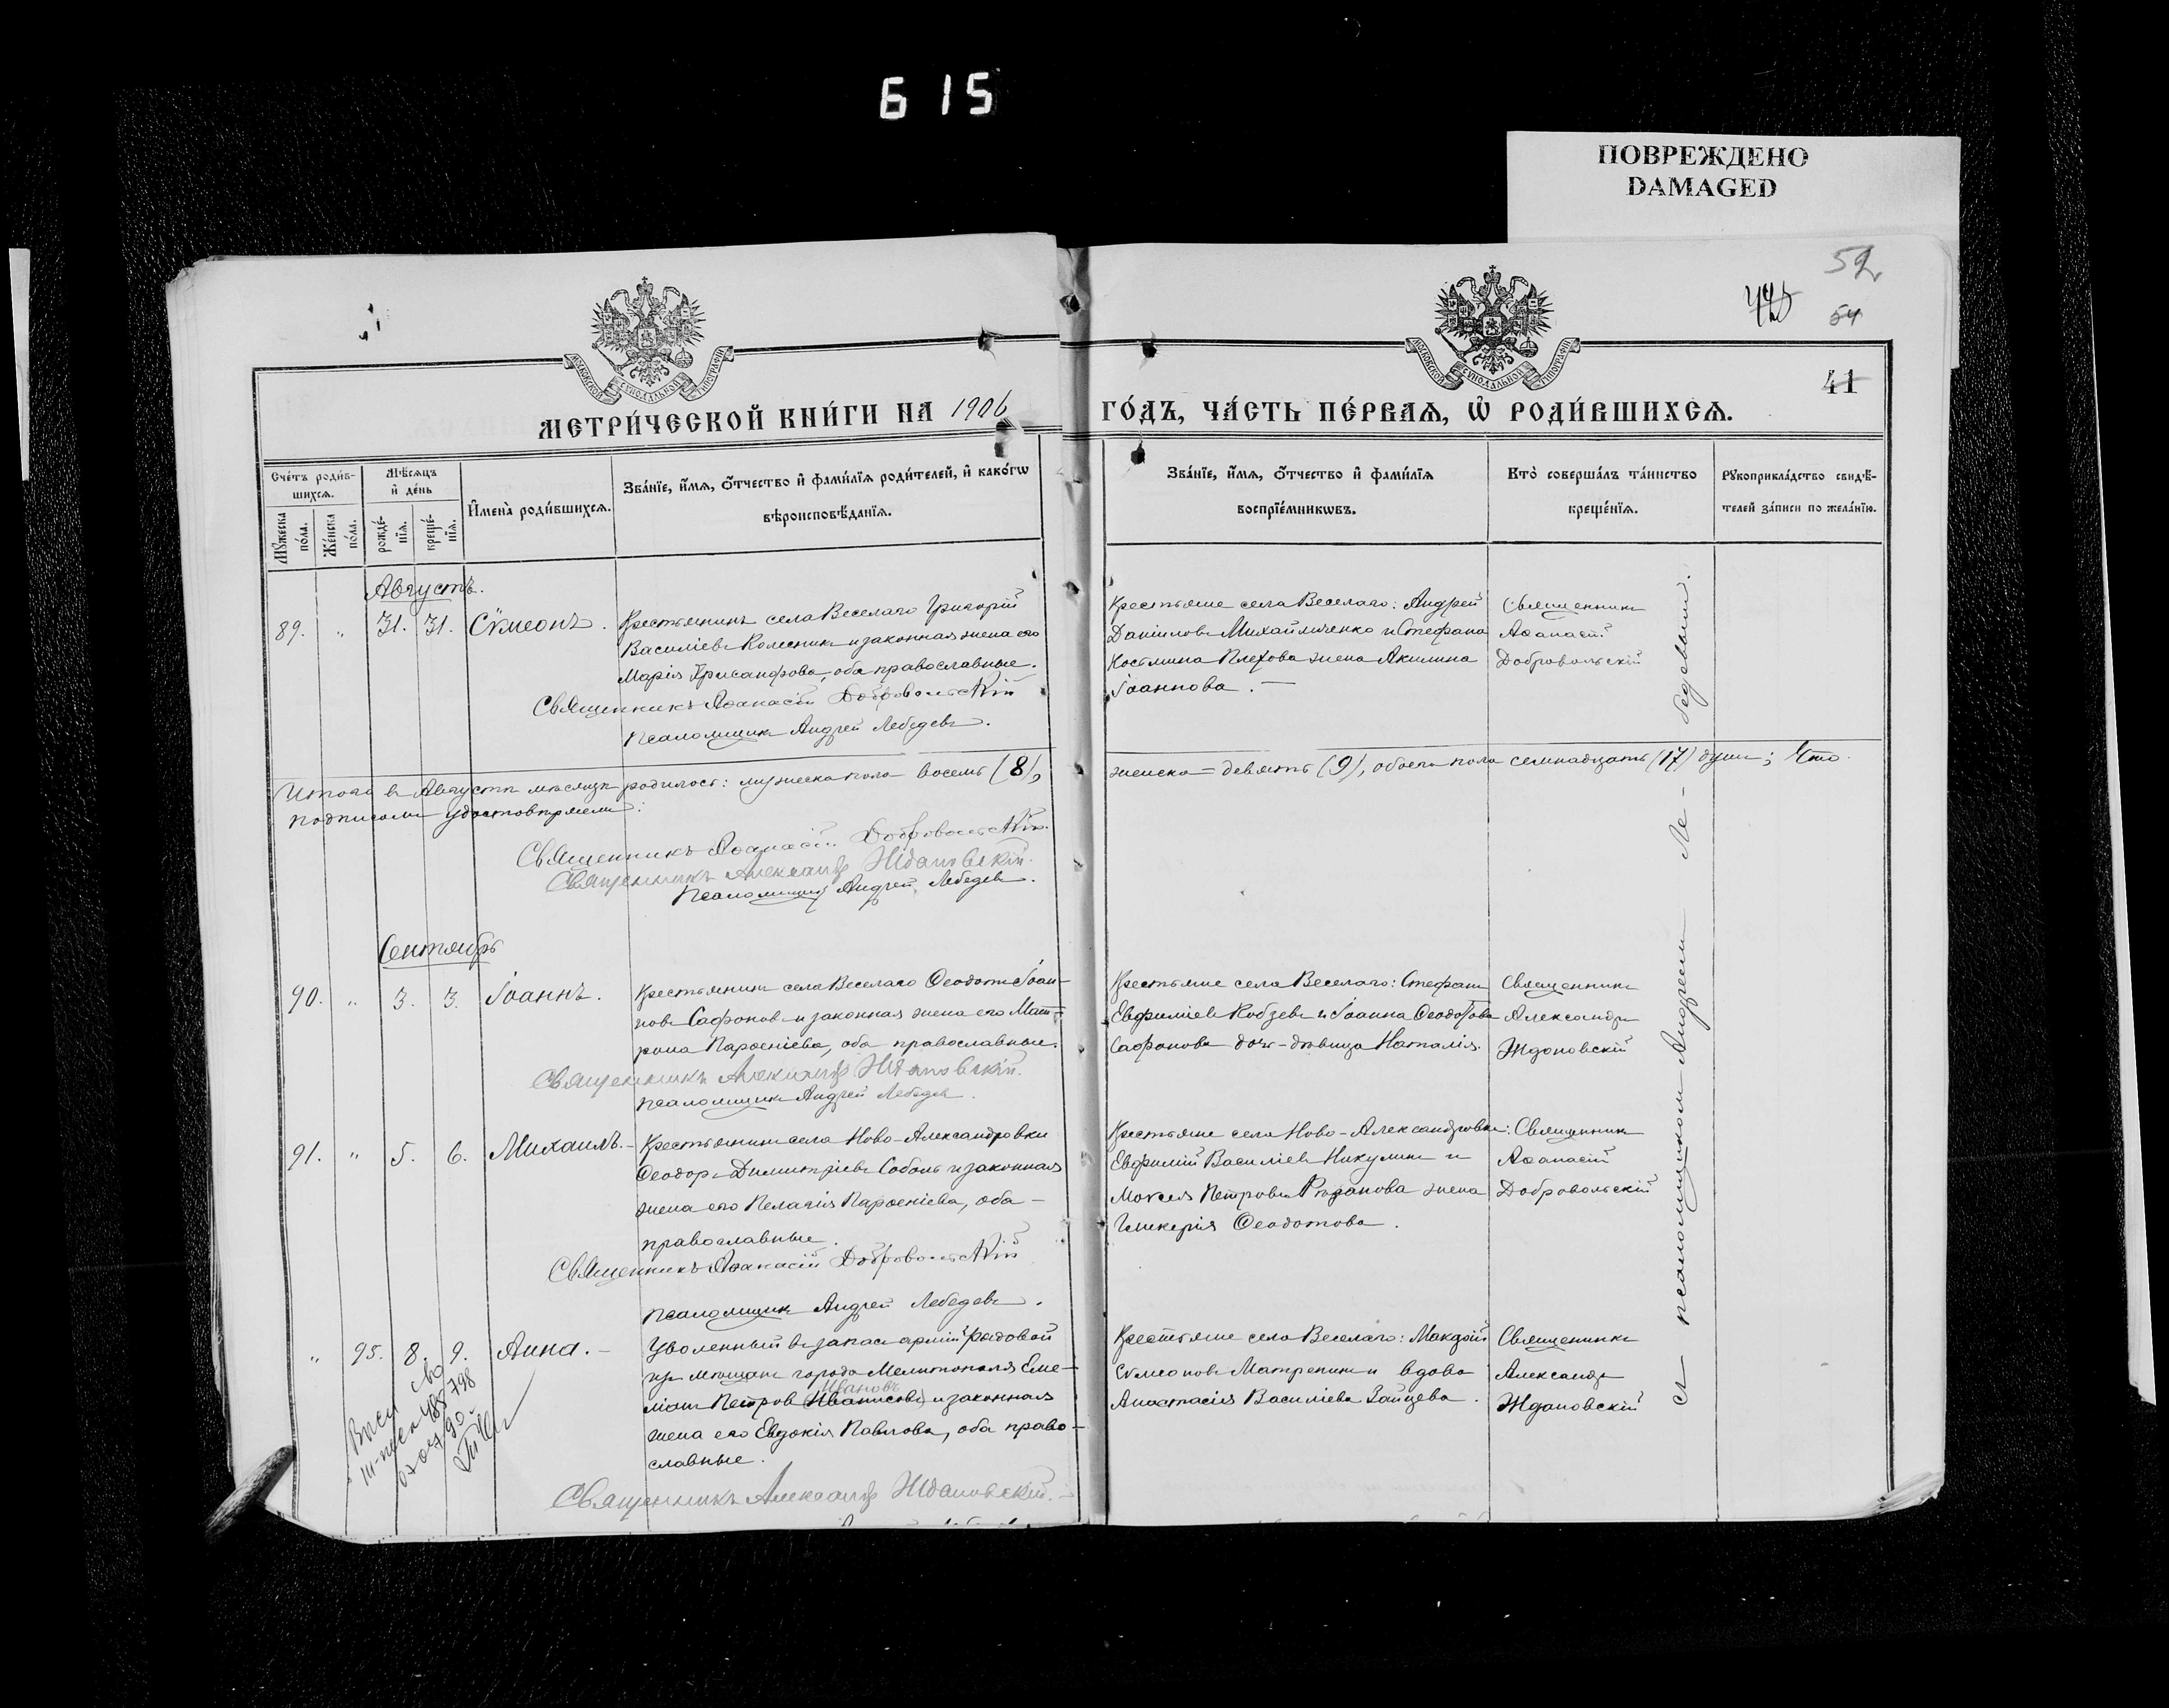 615
ПОВРЕЖДЕНО
DAMAGED
52
54
41
МЕТРИ́ЧЕСКОЙ КНИ́ГИ НА 1906
ГО́ДЪ, ЧА́СТЬ ПЕ́РВАѦ, Ѡ҆ РОДИ́ВШИХСѦ.
Сче́тъ роди́в-
шихсѧ.
Мѣ́сѧцъ
и҆ де́нь
Мꙋ́жеска по́ла.
Же́нска по́ла.
рожде́-
нїѧ.
креще́-
нїѧ.
И҆мена̀ роди́вшихсѧ.
Зва́нїе, и҆́мѧ, ѻ҆́тчество и҆ фами́лїѧ роди́телей, и҆ како́гѡ
вѣроисповѣ́данїѧ.
Зва́нїе, и҆́мѧ, ѻ҆́тчество и҆ фами́лїѧ
воспрїе́мникѡвъ.
Кто̀ соверша́лъ та́инство
креще́нїѧ.
Рꙋкоприкла́дство свидѣ́-
телей за́писи по жела́нїю.
Августъ.
89. " 31. 31. Сѵмеонъ.
Крестьянинъ села Веселаго Григорій
Василіевъ Колесникъ и законная жена его
Марія Хрисанфова, оба православные.
Священникъ Аѳанасій Добровольскій
Псаломщикъ Андрей Лебедевъ.
Крестьяне села Веселаго: Андрей
Даніиловъ Михайличенко и Стефана
Костина Плехова жена Акилина
Іоаннова.—
Священникъ
Аѳанасій
Добровольскій
Итого въ Августѣ мѣсяцѣ родилось: мужеска пола восемь (8),
женска — девять (9), обоего пола семнадцать (17) душъ; Что
подписомъ удостовѣряемъ:
Священникъ Аѳанасій Добровольскій.
Священникъ Александръ Ждановскій.
Псаломщикъ Андрей Лебедевъ.
Сентябрь
90. " 3. 3. Іоаннъ.
Крестьянинъ села Веселаго Ѳеодотъ Іоан-
новъ Сафоновъ и законная жена его Мат-
рона Парѳеніева, оба православные.
Священникъ Александръ Ждановскій.
Псаломщикъ Андрей Лебедевъ.
Крестьяне села Веселаго: Стефанъ
Евфиміевъ Кобзевъ и Іоанна Ѳеодотова
Сафонова дочь-дѣвица Наталія.
Священникъ
Александръ
Ждановскій
91. " 5. 6. Михаилъ.—
Крестьянинъ села Ново-Александровки
Ѳеодоръ Димитріевъ Соболь и законная
жена его Пелагія Парѳеніева, оба —
православные.
Священникъ Аѳанасій Добровольскій
Псаломщикъ Андрей Лебедевъ.
Крестьяне села Ново-Александровки:
Евфимій Василіевъ Никулинъ и
Моѵсея Петрова Рѣзанова жена
Гликерія Ѳеодотова.
Священникъ
Аѳанасій
Добровольскій
" 95. 8. 9. Анна.—
Уволенный въ запасъ арміи рядовой
изъ мѣщанъ города Мелитополя Еме-
Ивановъ
ліанъ Петровъ (Иванисовъ) и законная
жена его Евдокія Павлова, оба право-
славные.
Священникъ Александръ Ждановскій.—
Крестьяне села Веселаго:
Сѵмеоновъ Матренинъ и вдова
Анастасія Василіева Зайцева.
Священникъ
Александръ
Ждановскій
съ псаломщикомъ Андреемъ Ле-бедевымъ.